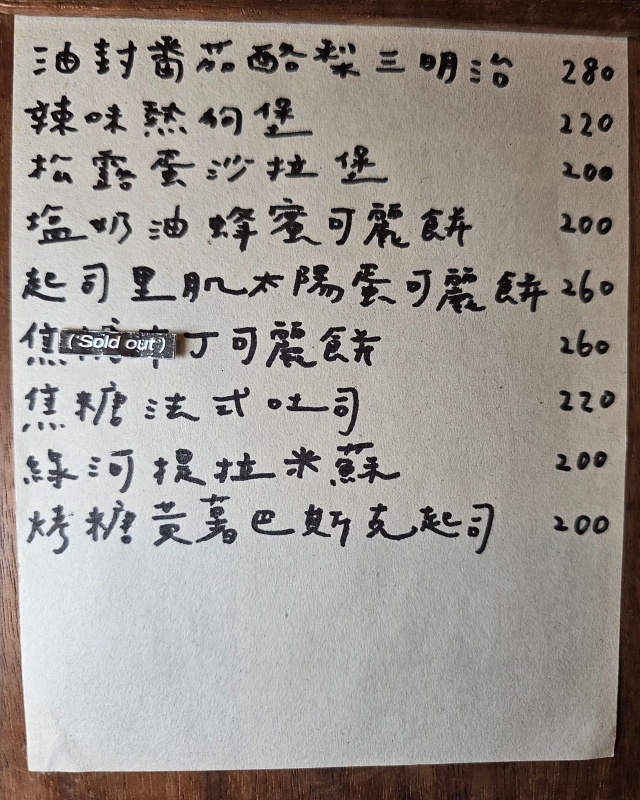 油封番茄酪梨三明治 280
辣味熱狗堡 220
松露蛋沙拉堡 200
塩奶油蜂蜜可麗餅 200
起司里肌太陽蛋可麗餅 260
焦 (Sold out) 丁可麗餅 260
焦糖法式吐司 220
綠河提拉米蘇 200
烤糖黃薯巴斯克起司 200